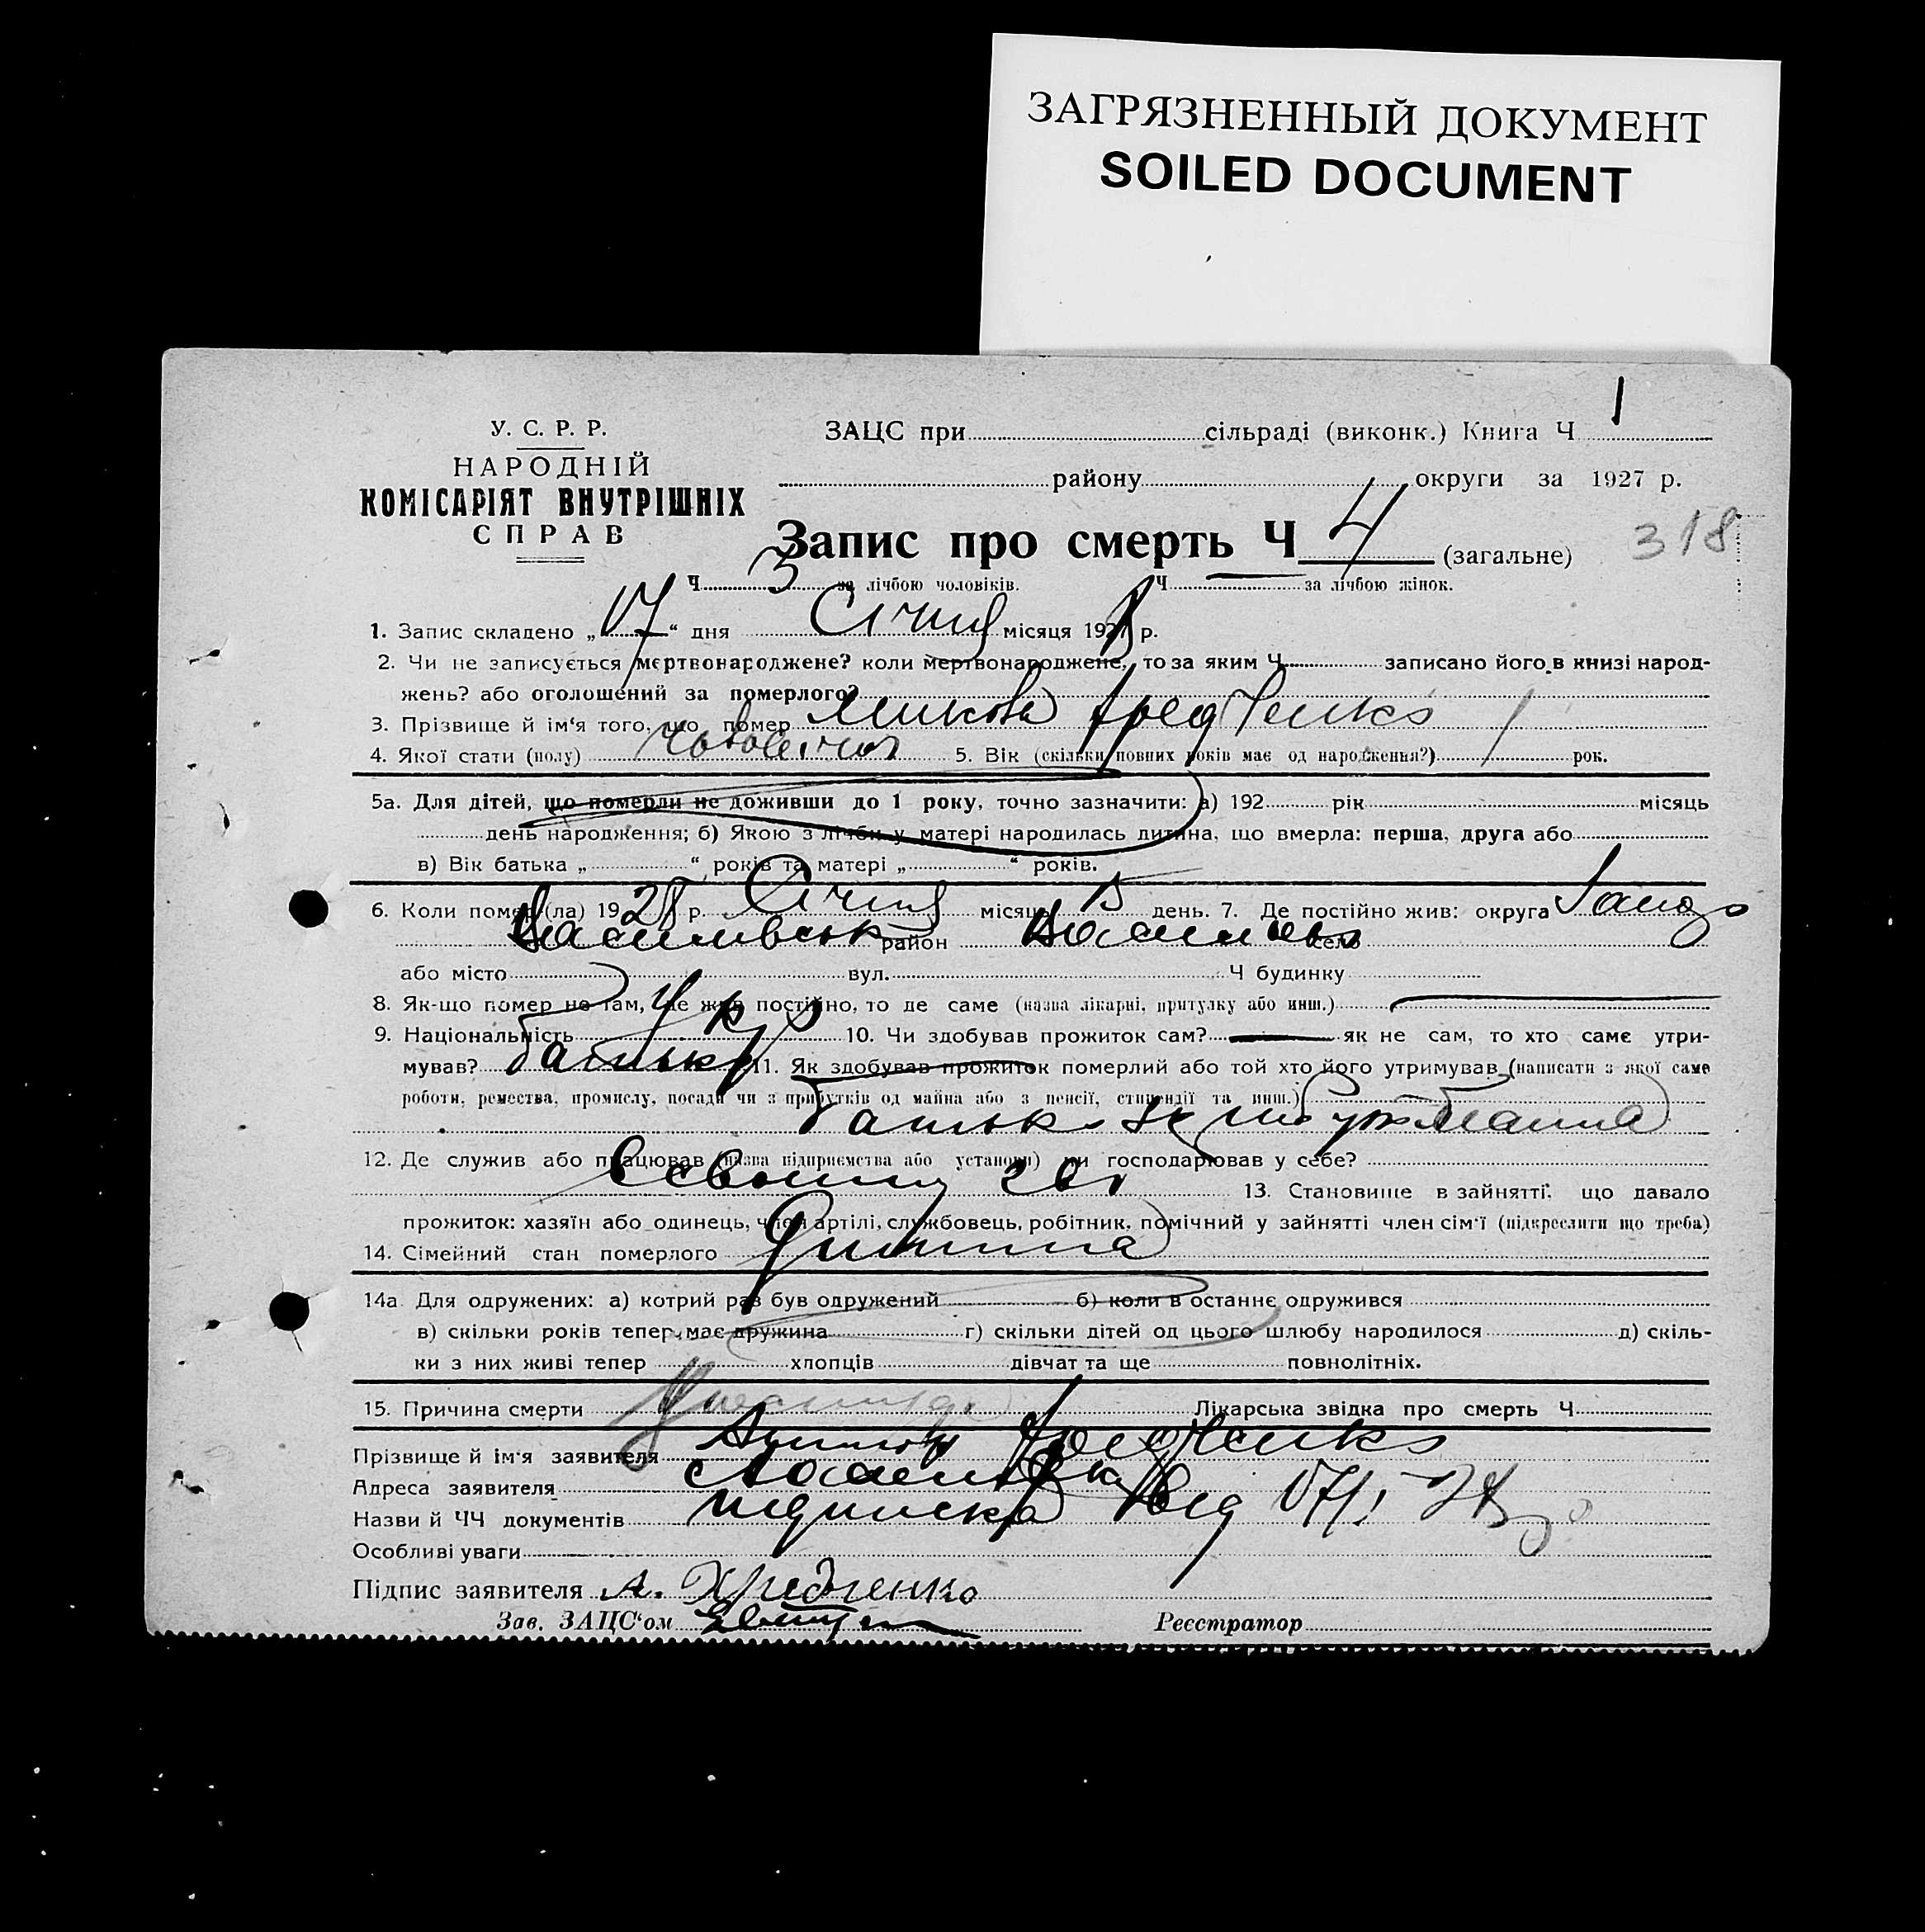 ЗАГРЯЗНЕННЫЙ ДОКУМЕНТ
SOILED DOCUMENT
У. С. Р. Р.
НАРОДНІЙ
КОМІСАРІЯТ ВНУТРІШНІХ
СПРАВ
ЗАЦС при сільраді (виконк.) Книга Ч 1
району округи за 1927 р.
Запис про смерть Ч 4 (загальне) 318
Ч 3 за лічбою чоловіків. Ч — за лічбою жінок.
1. Запис складено „17“ дня Січня місяця 1928 р.
2. Чи не записується мертвонароджене? коли мертвонароджене, то за яким Ч записано його в книзі народ-
жень? або оголошений за померлого?
3. Прізвище й ім'я того, що помер Микола
4. Якої стати (полу) чоловічої 5. Вік (скільки повних років має од народження?) 1 рок.
5а. Для дітей, що померли не доживши до 1 року, точно зазначити: а) 192 рік місяць
день народження; б) Якою з лічби у матері народилась дитина, що вмерла: перша, друга або
в) Вік батька „ “ років та матері „ “ років.
6. Коли помер (ла) 1928 р. Січня місяць 15 день. 7. Де постійно жив: округа Запоріз
Василівськ район Василівка село
або місто вул. Ч будинку
8. Як-що помер не там, де жив постійно, то де саме (назва лікарні, притулку або инш.) —
9. Національність Укр 10. Чи здобував прожиток сам? — як не сам, то хто саме утри-
мував? батько 11. Як здобував прожиток померлий або той хто його утримував (написати з якої саме
роботи, ремества, промислу, посади чи з прибутків од майна або з пенсії, стипендії та инш.)
батько
12. Де служив або працював (назва підприємства або установи) чи господарював у себе?
В своїму 13. Становище в зайнятті: що давало
прожиток: хазяїн або одинець, член артілі, службовець, робітник, помічний у зайнятті член сім'ї (підкреслити що треба)
14. Сімейний стан померлого Дитина
14а Для одружених: а) котрий раз був одружений б) коли в останнє одружився
в) скільки років тепер має дружина г) скільки дітей од цього шлюбу народилося д) скіль-
ки з них живі тепер хлопців дівчат та ще повнолітніх.
15. Причина смерти Лікарська звідка про смерть Ч
Прізвище й ім'я заявителя
Адреса заявителя с Василівка
Назви й ЧЧ документів підписка від 17/I 28 р
Особливі уваги
Підпис заявителя А. Хредченко
Зав. ЗАЦС'ом Реєстратор